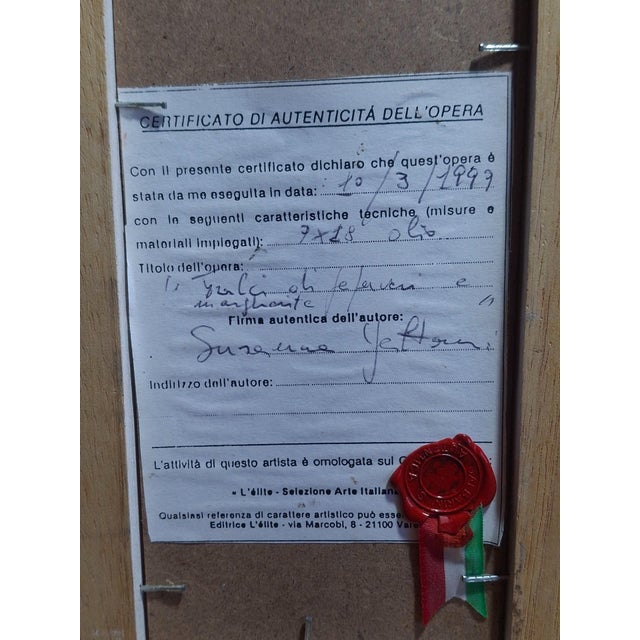 CERTIFICATO DI AUTENTICITÁ DELL'OPERA
Con il presente certificato dichiaro che quest'opera è
stata da me eseguita in data: 10/3/1997
con le seguenti caratteristiche tecniche (misure e
materiali impiegati): 7x18 olio
Titolo dell'opera:
" Tralci di papaveri e
margherite "
Firma autentica dell'autore:
Susanna
Indirizzo dell'autore:
L'attività di questo artista è omologata sul
« L'élite - Selezione Arte Italiana
Qualsiasi referenza di carattere artistico può esse
Editrice L'élite - via Marcobi, 8 - 21100 Vare